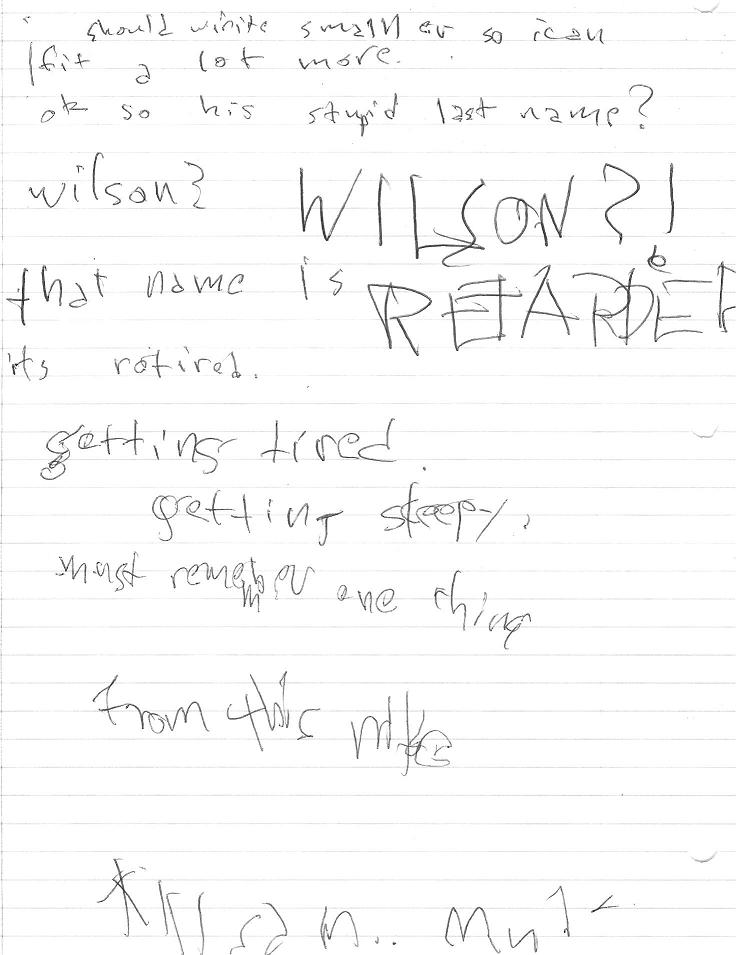 i should write smaller so i can
fit a lot more.
ok so his stupid last name?
wilson? WILSON?!
that name is RETARDED
its retired.
getting tired.
getting sleepy.
must remember one thing
from this